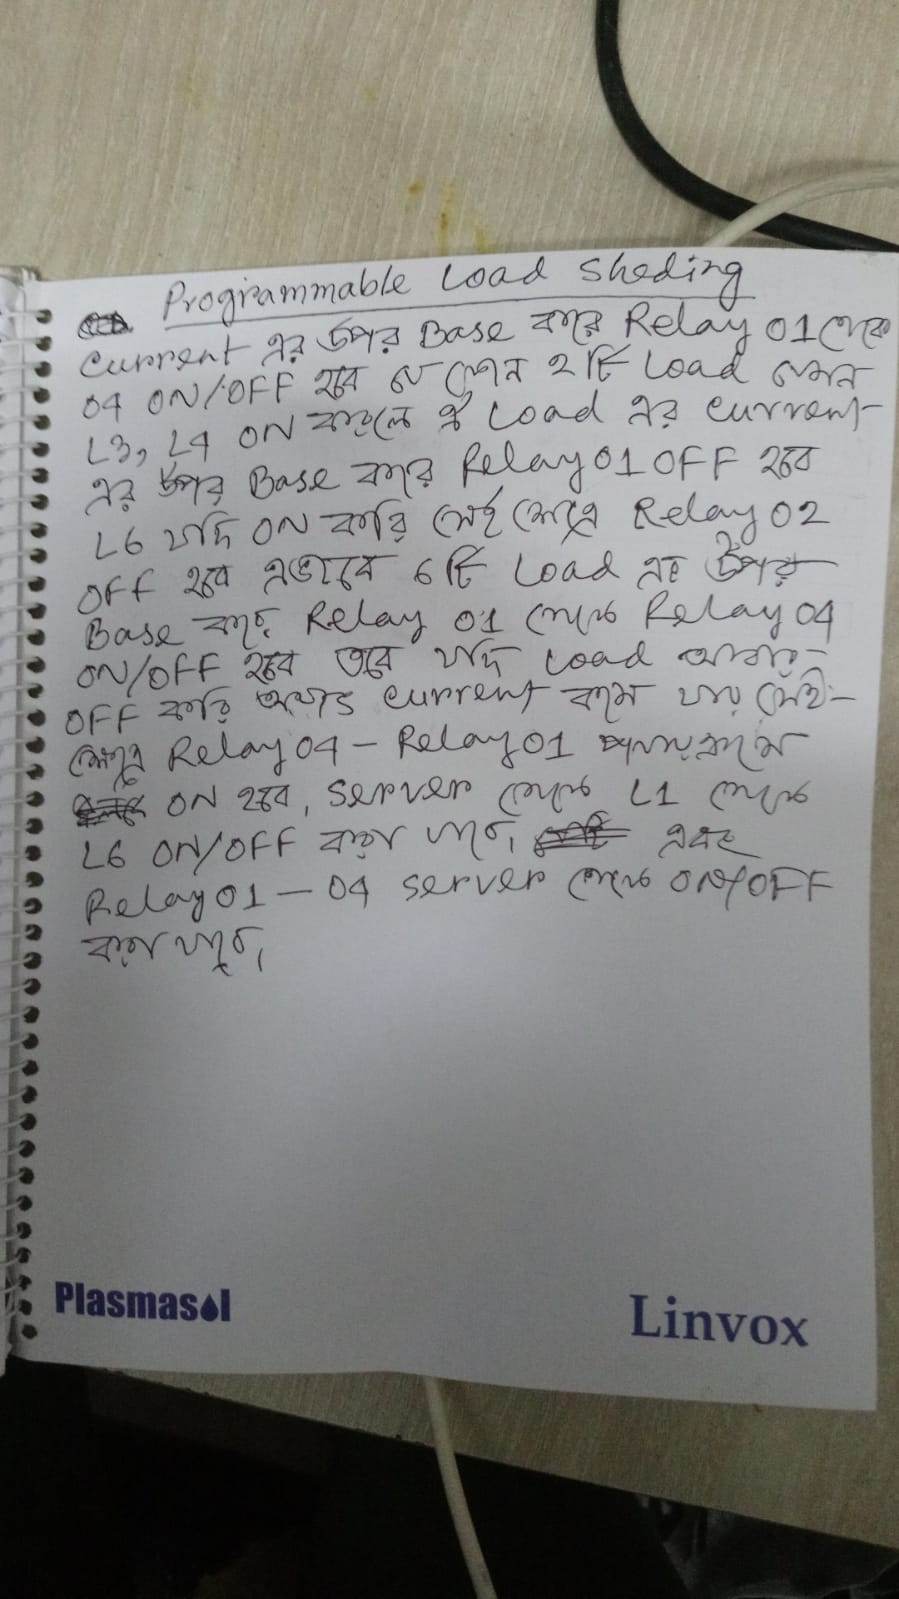 Programmable Load Sheding
Current এর উপর Base করে Relay 01 থেকে
04 ON/OFF হবে যে কোন ২টি Load যেমন
L3, L4 ON করলে ঐ Load এর Current
এর উপর Base করে Relay 01 OFF হবে
L6 যদি ON করি সেই ক্ষেত্রে Relay 02
OFF হবে এভাবে 6টি Load এর উপর
Base করে Relay 01 থেকে Relay 04
ON/OFF হবে তবে যদি Load আবার
OFF করি অর্থাৎ Current কমে যায় সেই
ক্ষেত্রে Relay 04 - Relay 01 পর্যায়ক্রমে
ON হবে, Server থেকে L1 থেকে
L6 ON/OFF করা যাবে, এবং
Relay 01 - 04 Server থেকে ON/OFF
করা যাবে,
Plasmasol
Linvox